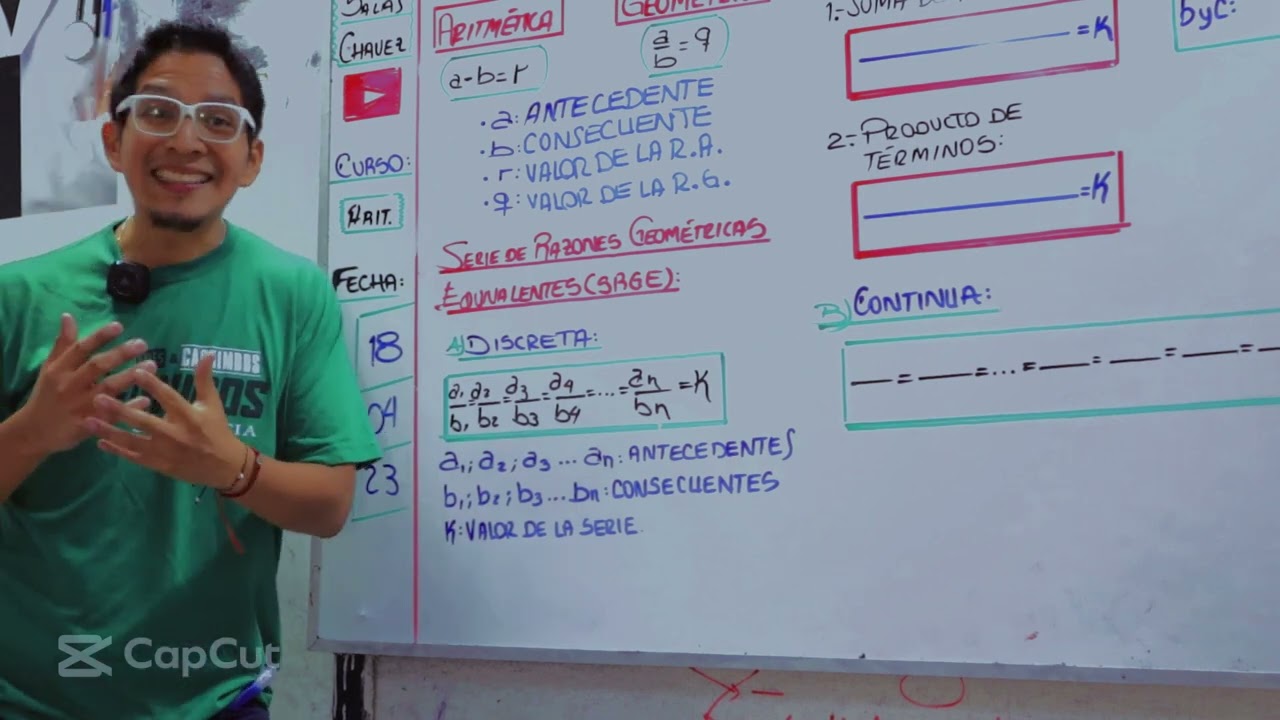 SALAS
CHAVEZ
CURSO:
ARIT.
FECHA:
18
04
23
ARITMÉTICA
a-b=r
a/b=q
• a: ANTECEDENTE
• b: CONSECUENTE
• r: VALOR DE LA R.A.
• q: VALOR DE LA R.G.
SERIE DE RAZONES GEOMÉTRICAS
EQUIVALENTES (SRGE):
A) DISCRETA:
a₁/b₁ = a₂/b₂ = a₃/b₃ = a₄/b₄ = ... = aₙ/bₙ = K
a₁; a₂; a₃ ... an: ANTECEDENTES
b₁; b₂; b₃ ... bn: CONSECUENTES
K: VALOR DE LA SERIE.
1.- SUMA
= K
2.- PRODUCTO DE
TÉRMINOS:
= K
B) CONTINUA:
— = — = ... = — = — = — = —
b y c:
CapCut